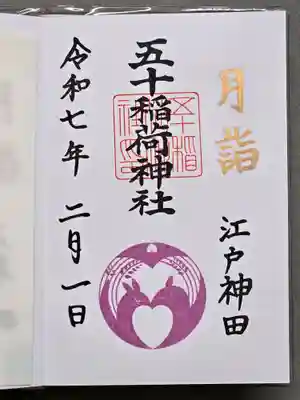 月詣
江戸神田
五十稲荷神社
令和七年 二月一日